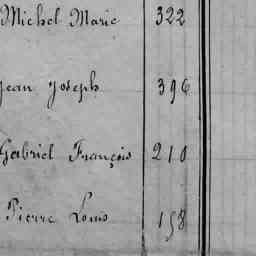 Michel Marie 322
Jean Joseph 396
Gabriel François 210
Pierre Louis 158